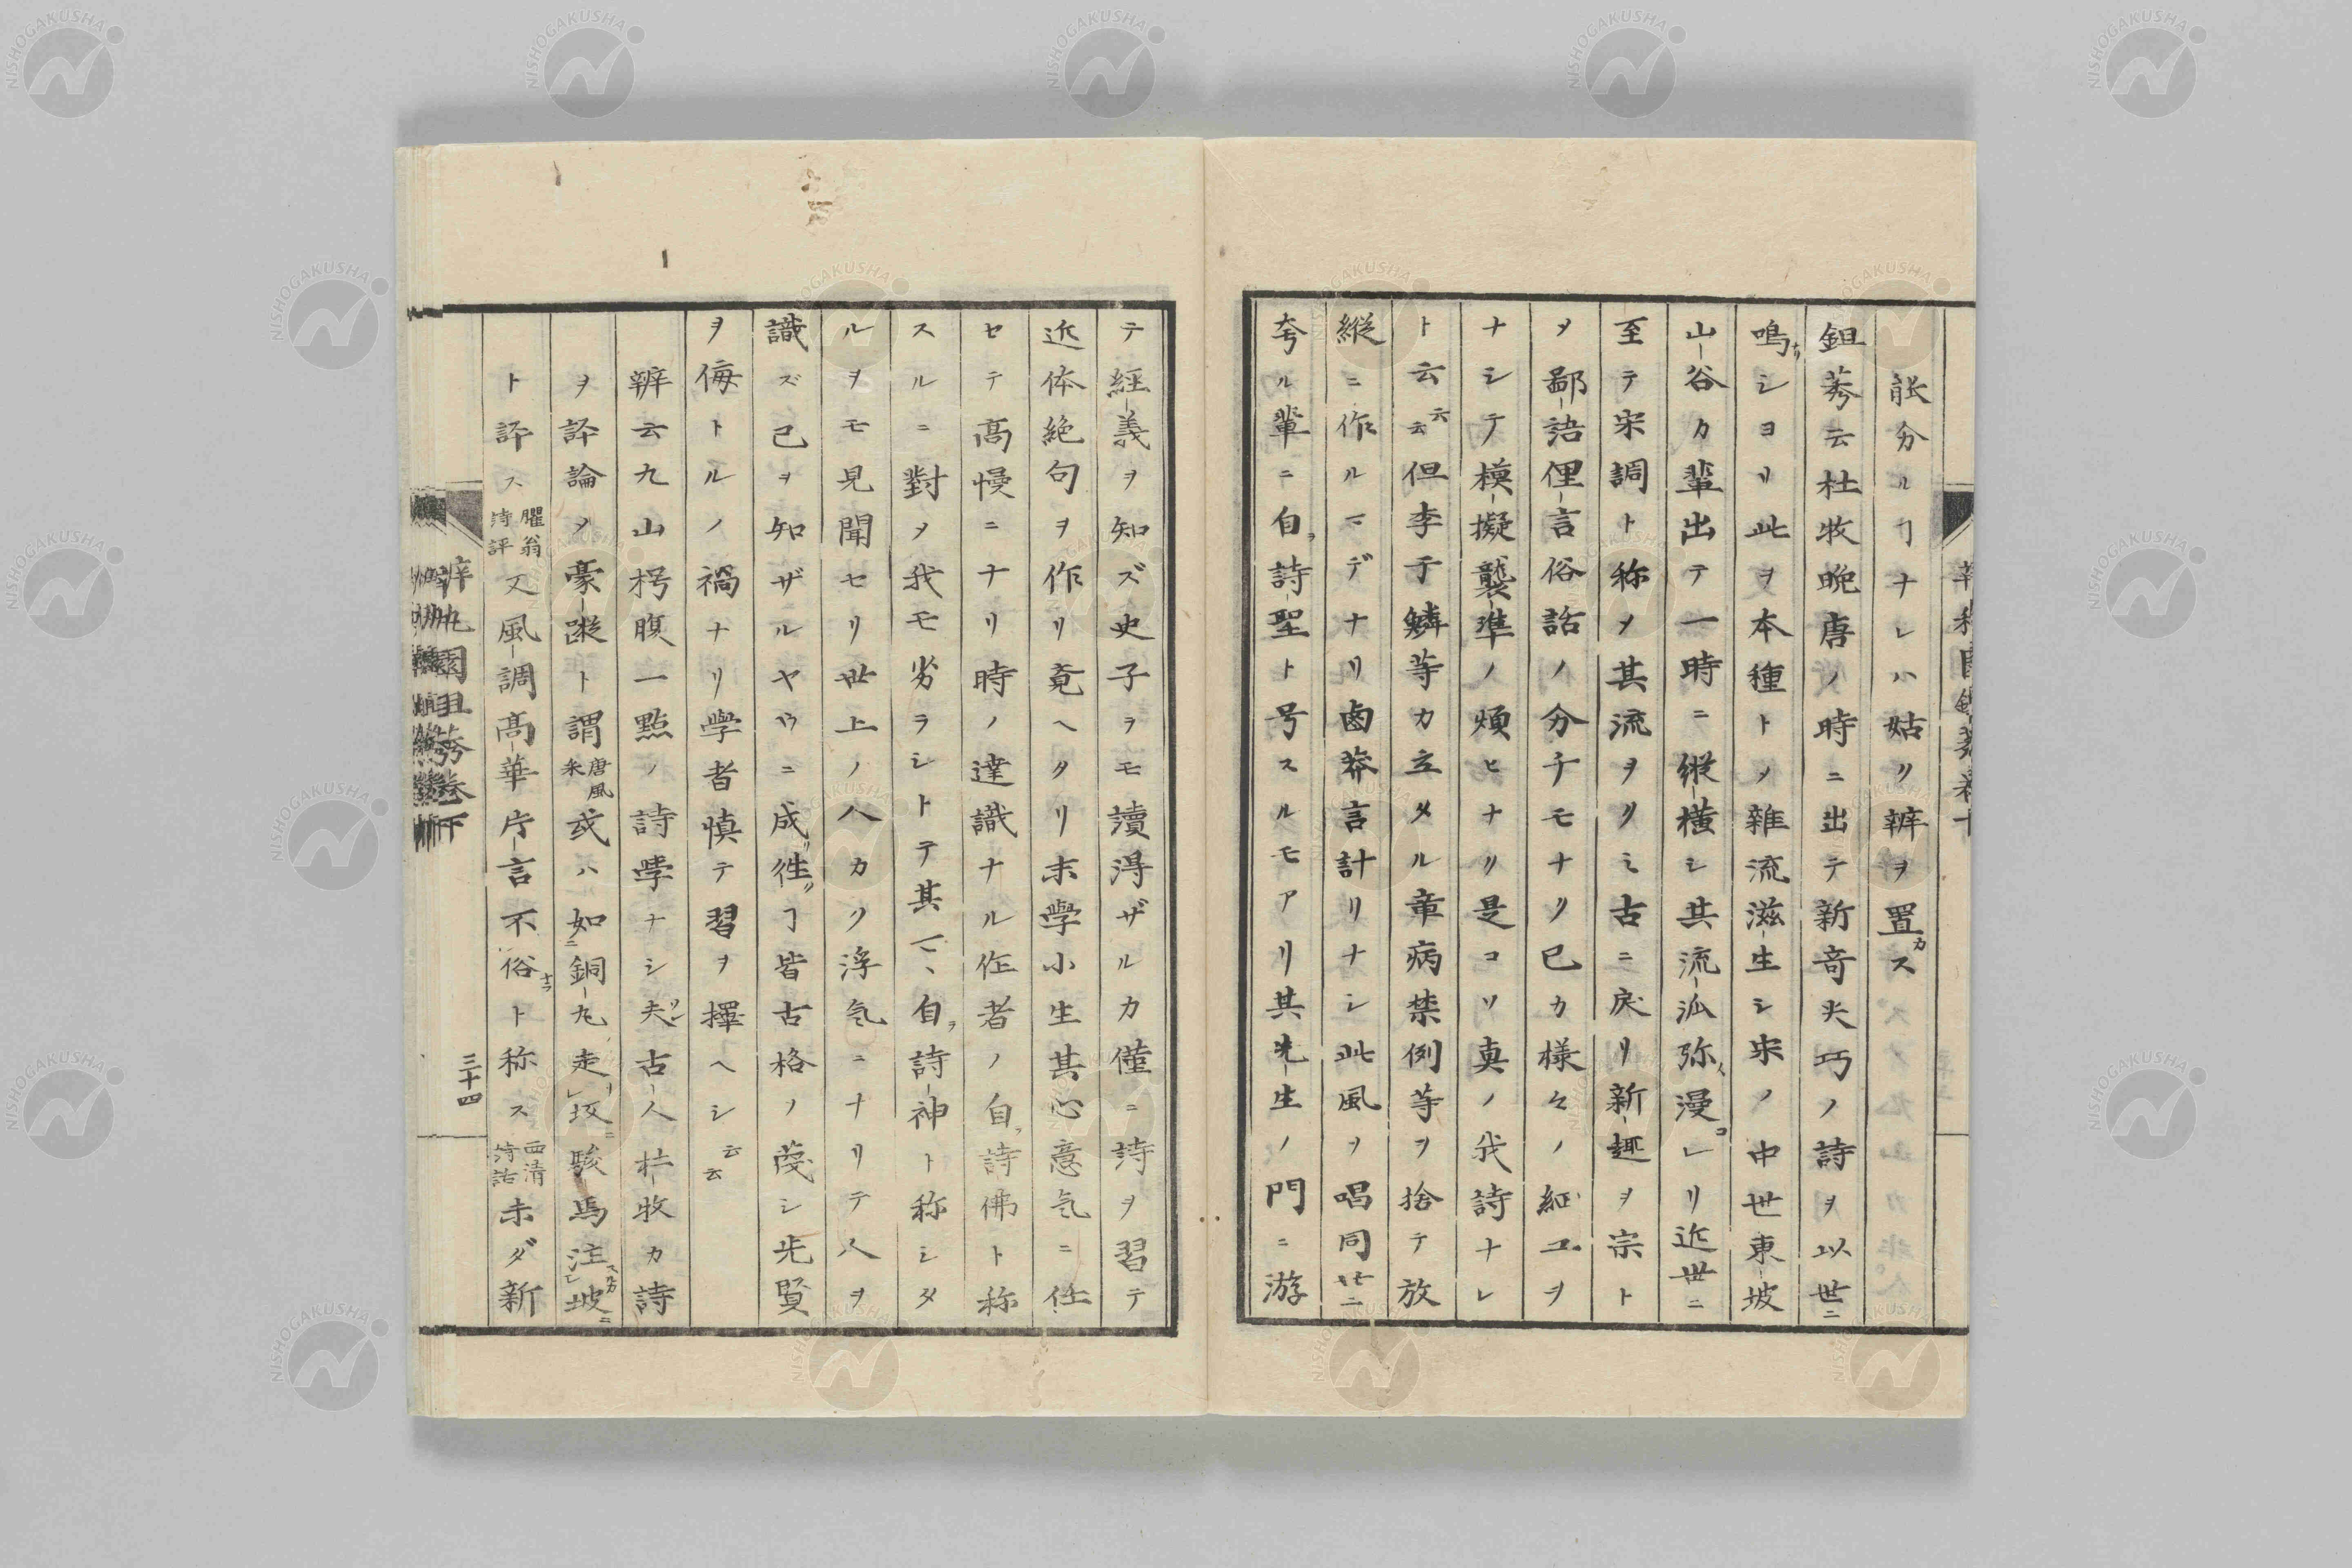 能分ルヿナレハ姑ク辨ヲ置カス
鉏莠云杜牧晩唐ノ時ニ出テ新竒尖巧ノ詩ヲ以世ニ
鳴ナリシヨリ此ヲ本種トメ雑流滋生シ宋ノ中世東坡
山谷カ輩出テ一時ニ縦横シ其流派弥漫レリ近世ニ
至テ宋調ト称メ其流ヲクミ古ニ戻リ新趣ヲ宗ト
ヲ鄙語俚言俗話ノ分チモナク己カ様々ノ細工ヲ
ナシテ模擬襲準ノ煩ヒナク是コソ真ノ我詩ナレ
ト云云云但李于鱗等カ立タル章病禁例等ヲ捨テ放
縦ニ作ルマデナリ鹵莽言計リナシ此風ヲ唱同世ニ
夸ル輩ニ自ラ詩聖ト号スルモアリ其先生ノ門ニ游
テ經義ヲ知ズ史子ヲモ讀得ザルカ僅ニ詩ヲ習テ
近体絶句ヲ作リ竟ヘタリ末學小生其心意気ニ任
セテ高慢ニナリ時ノ達識ナル作者ノ自ラ詩佛ト称
スルニ對メ我モ劣ラシトテ其下ヽ自ラ詩神ト称シタ
ルヲモ見聞セリ世上ノ人カク浮気ニナリテ人ヲ
識ズ己ヲ知ザルヤウニ成徃クヿ皆古格ノ蔑シ先賢
ヲ侮トルノ禍ナリ學者慎テ習ヲ擇ヘシ云云
辨云九山枵腹一點ノ詩學ナシ夫レ古人杜牧カ詩
ヲ評論メ豪縦ト謂唐風采或ハ如銅丸走坂駿馬注坡
ト評ス臞翁詩評又風調高華片言不俗ト称ス西清詩話未ダ新
辨九圃鉏莠卷下
三十四